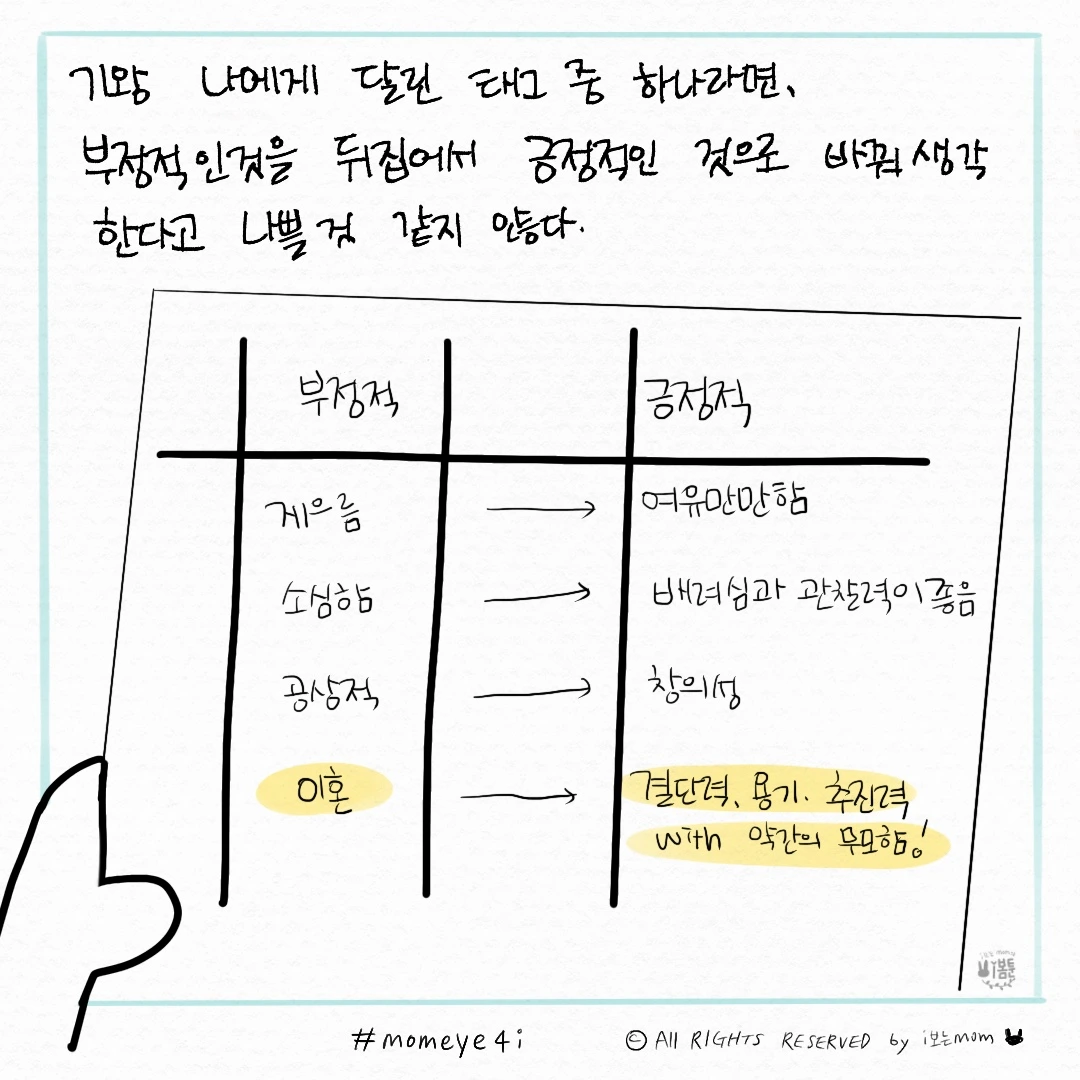 기왕 나에게 달린 태그 중 하나라면,
부정적인것을 뒤집어서 긍정적인 것으로 바꿔 생각
한다고 나쁠 것 같지 않다.
부정적 긍정적
게으름 → 여유만만함
소심함 → 배려심과 관찰력이 좋음
공상적 → 창의성
이혼 → 결단력, 용기. 추진력
with 약간의 무모함!
i봄툰
#momeye4i
© All RIGHTS RESERVED by i보는mom